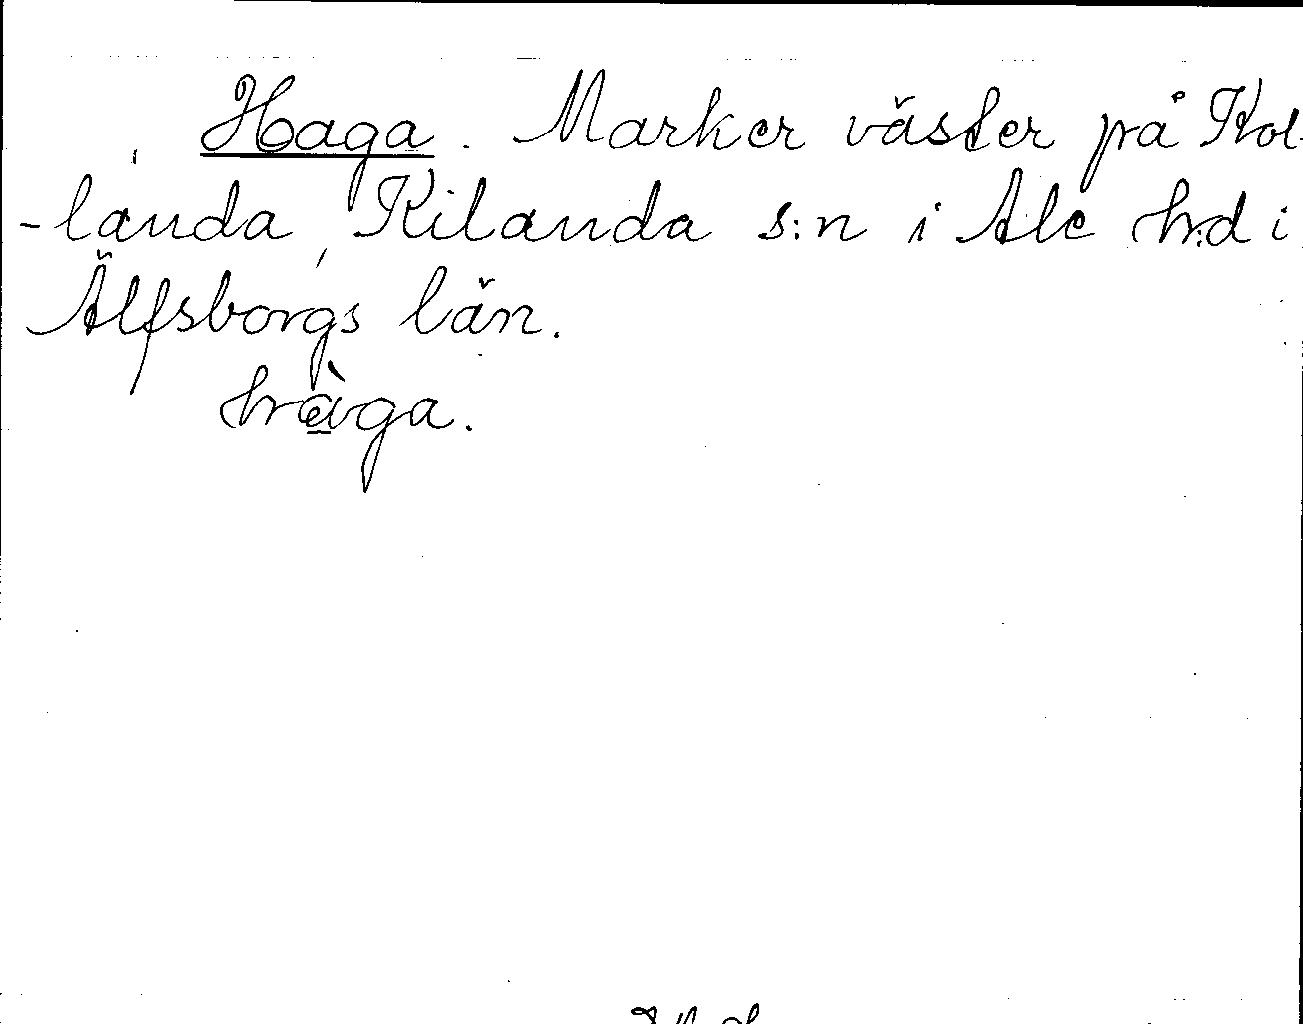 Haga. Marker väster på Kol-
-landa, Kilanda s:n i Ale h:d i
Älfsborgs län.
hàga.